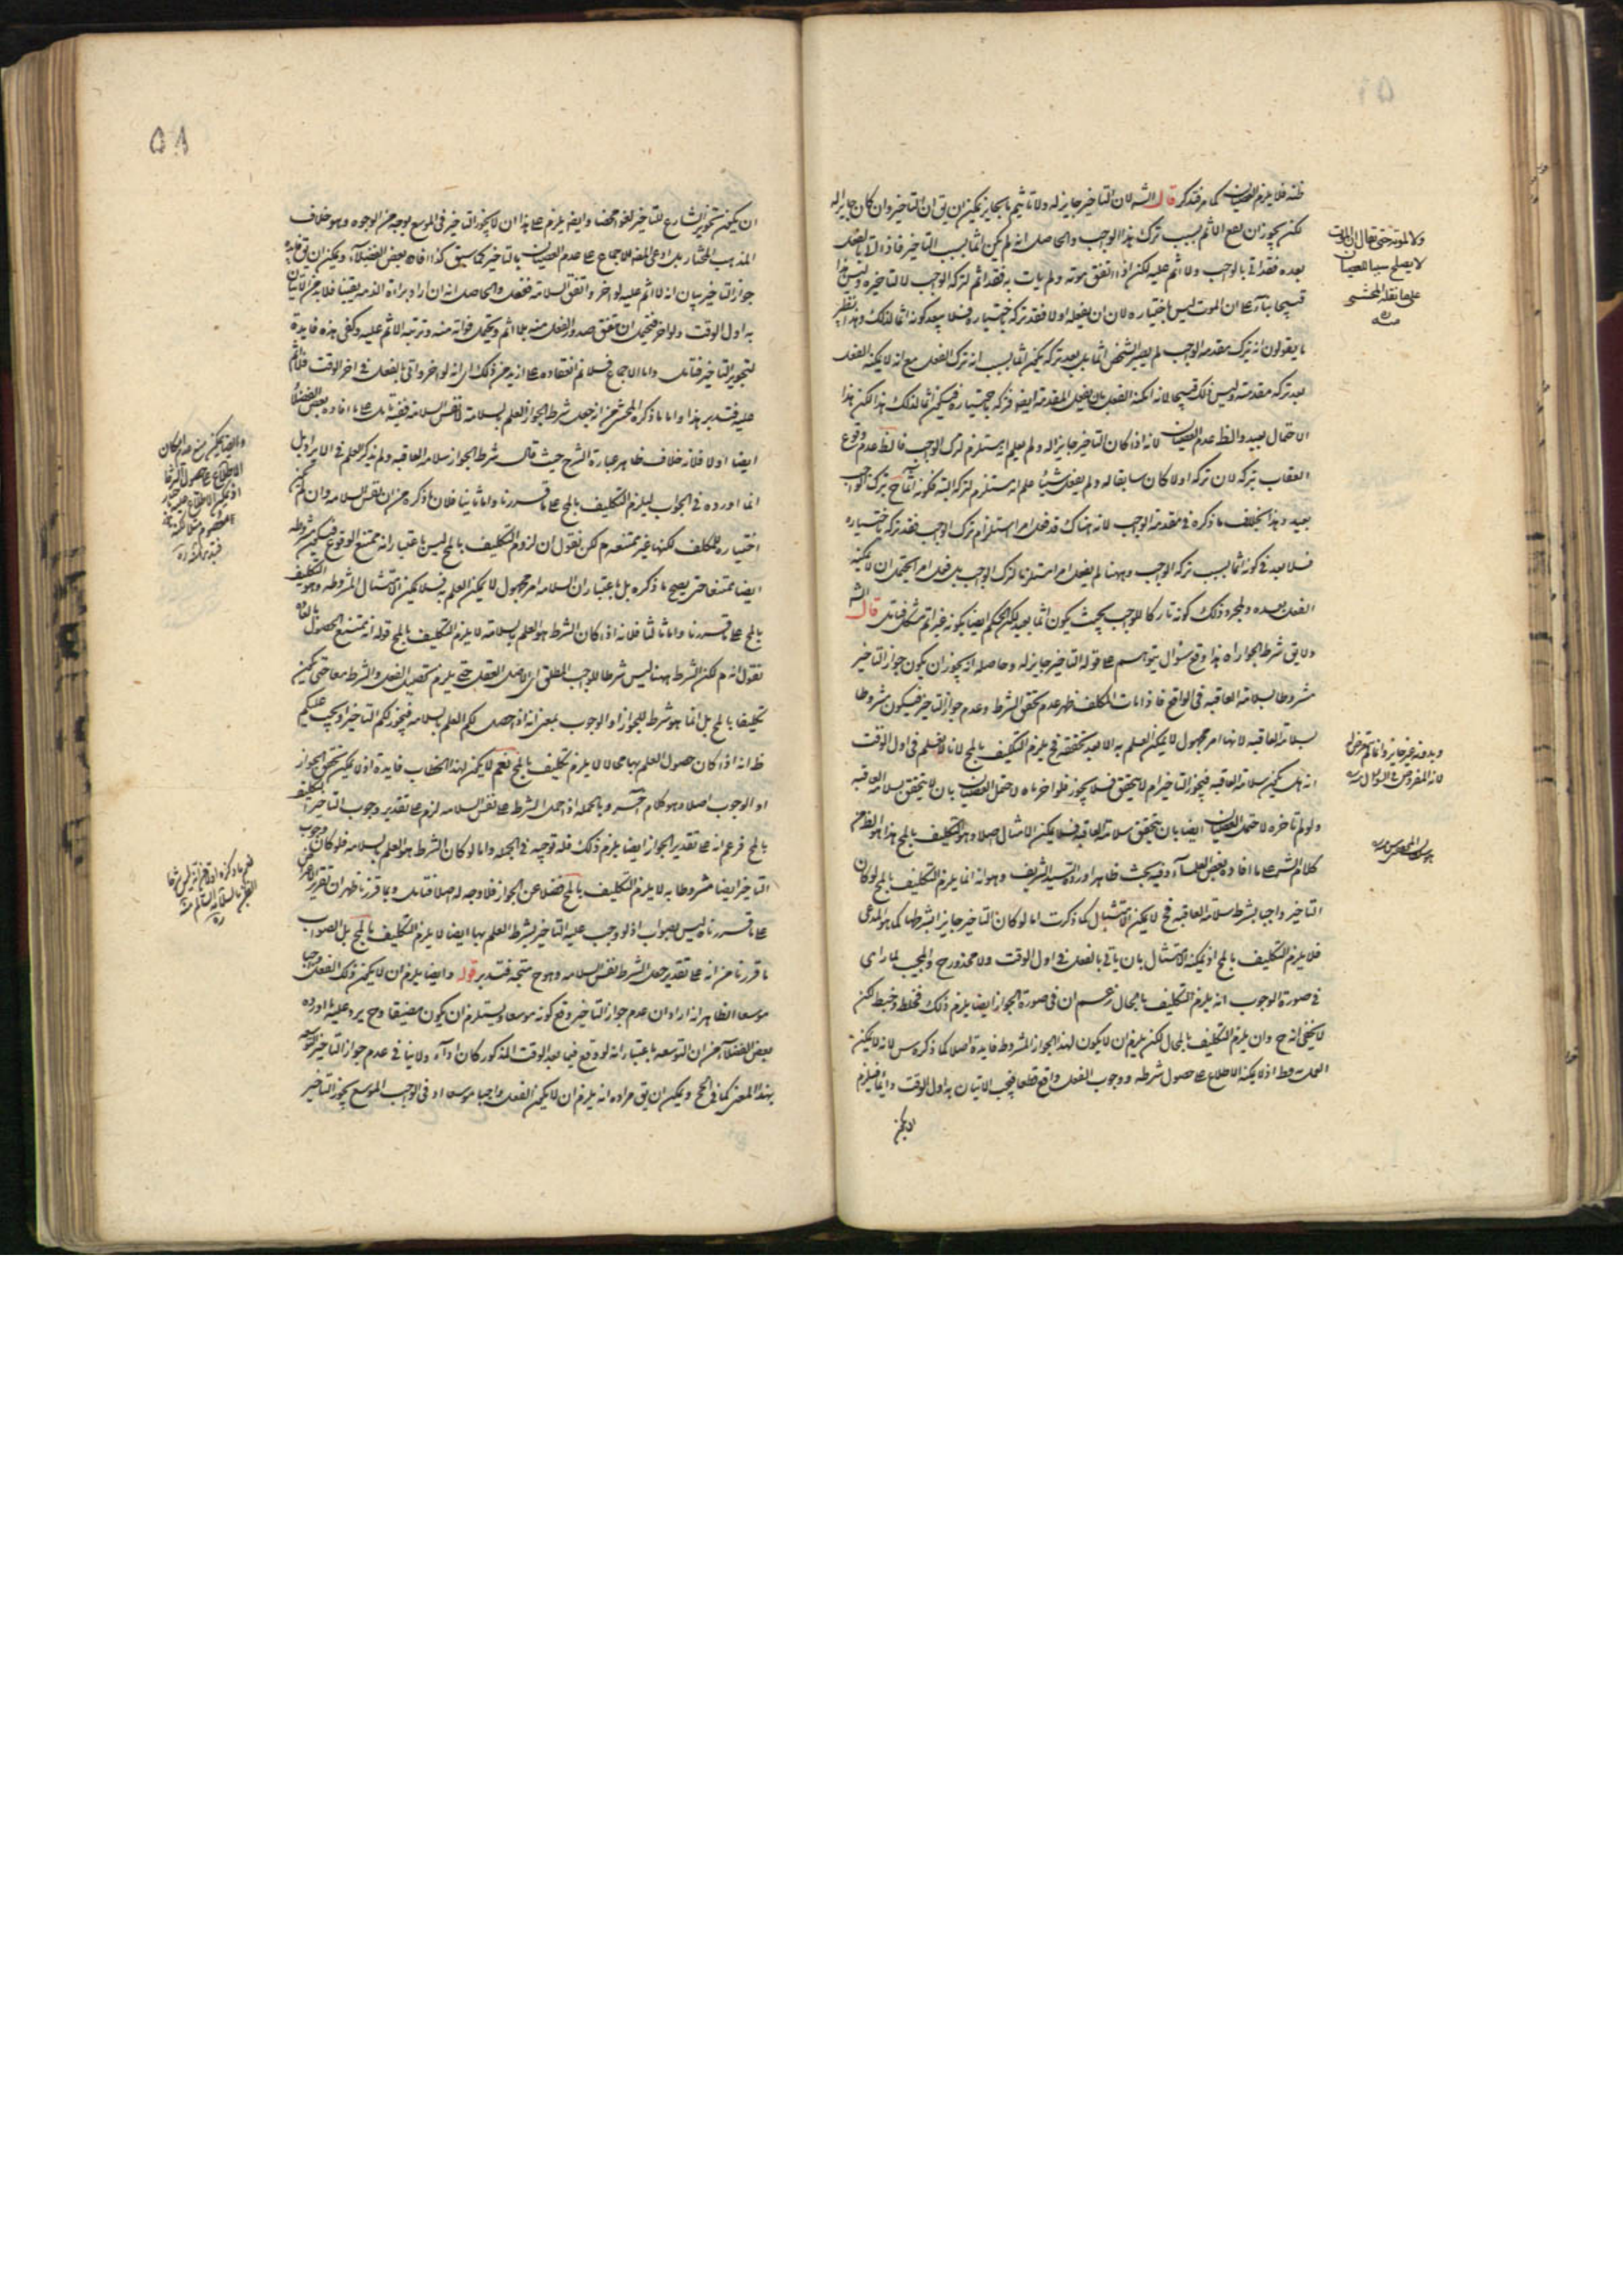 ظنه فلا يلزم العصيان كما مر فتدبر قال الشه لان التاخير جايز له ولا تاثيم بالجايز يمكن ان يق ان التاخير وان كان جايزا له
لكن يجوز ان يقع الاثم بسبب ترك هذا الواجب والحاصل انه لم يكن اثما بسبب التاخير فاذا اتى بالفعل
بعده فقد اتى بالواجب ولا اثم عليه لكن اذا اتفق موته ولم يات به فقد اثم لتركه الواجب لا لتاخيره وليس هذا
قبيحا بناء على ان الموت ليس باختياره لان ان يفعله اولا فقد تركه باختياره فلا يبعد كونه اثما لذلك وهذا نظير
ما يقولون انه بترك مقدمة الواجب لم يصير الشخص اثما بل بعد تركه يكون اثما بسبب انه ترك الفعل مع انه لا يمكنه الفعل
بعد تركه مقدمته وليس ذلك قبيحا لانه امكنه الفعل بان يفعل المقدمة ايضا فتركه باختياره فيكون اثما لذلك هذا لكن هذا
الاحتمال بعيد والظ عدم العصيان لانه اذا كان التاخير جايزا له ولم يعلم انه يستلزم ترك الواجب فالظ عدم وقوع
العقاب بتركه لان تركه اولا كان سايغا له ولم يفعل شيئا علم انه مستلزم لتركه البتة فكونه اثما ح بترك الواجب
بعيد وهذا بخلاف ما ذكره في مقدمة الواجب لانه هناك قد فعل امرا استلزم ترك الواجب فقد تركه باختياره
فلا بعد في كونه اثما بسبب تركه الواجب وههنا لم يفعل امرا مستلزما لترك الواجب بل فعل امرا يحتمل ان لا يمكنه
الفعل بعده وبمجرد ذلك كونه تاركا للواجب بحيث يكون اثما بعيد لكن الحكم ايضا بكونه غير اثم مشكل فتامل قال الشه
ولا يق شرط الجواز اه هذا وقع سؤال يتوهم على قوله التاخير جايز له وحاصله انه يجوز ان يكون جواز التاخير
مشروطا بسلامة العاقبة في الواقع فاذا مات المكلف ظهر عدم تحقق الشرط وعدم جواز التاخير فيكون مشروطا
بسلامة العاقبة لانها امر مجهول لا يمكن العلم به الا بعد تحققه فيلزم التكليف بالمح لانا لا نعلم في اول الوقت
انه هل يكون سلامة العاقبة فيجوز التاخير ام لا يتحقق فلا يجوز فلو اخرناه لاحتمل العصيان بان لا يتحقق سلامة العاقبة
ولو لم نؤخره لاحتمل العصيان ايضا بان يتحقق سلامة العاقبة فلا يمكن الامتثال اصلا وهو التكليف بالمح هذا هو الظ من
كلام الش على ما افاده بعض العلماء وفيه بحث ظاهر اورده السيد الشريف وهو انه انما يلزم التكليف بالمح لو كان
التاخير واجبا بشرط سلامة العاقبة فح لا يمكن الامتثال كما ذكرت اما لو كان التاخير جايزا بشرطها كما هو المدعى
فلا يلزم التكليف بالمح اذ يمكنه الامتثال بان ياتي بالفعل في اول الوقت ولا محذور ح والمجيب لما راى
في صورة الوجوب انه يلزم التكليف بالمحال زعم ان في صورة الجواز ايضا يلزم ذلك فخلط وخبط لكن
لا يخفى انه ح وان لم يلزم التكليف بالمحال لكن يلزم ان لا يكون لهذا الجواز المشروط فايدة اصلا كما ذكره س لانه لا يمكن
العمل اذ لا يمكنه الاطلاع على حصول شرطه ووجوب الفعل واقع قطعا فيجب الاتيان به اول الوقت دايما فيلزم
ولا لموته حتى يقال ان الموت
لا يصلح سببا للعصيان
على ما نقله المحشى
منه
وبدونه غير جايز وانما لم يتعرض له
لانه المفروض في السؤال منه
٥٨
ان يكون تجويز الشارع للتاخير لغوا محضا وايضا يلزم على هذا ان لا يجوز التاخير في الموسع بوجه من الوجوه وهو خلاف
المذهب المختار بل ادعى المص الاجماع على عدم العصيان بالتاخير كما سبق كذا افاده بعض الفضلاء ويمكن ان يق فايدة
جواز التاخير بيان انه لا اثم عليه لو اخر واتفق السلامة ففعل والحاصل انه ان اراد براءة الذمة يقينا فلا بد من الاتيان
به اول الوقت ولو اخر فيحتمل ان يتفق صدور الفعل منه بلا اثم ويحتمل فواته منه وترتب الاثم عليه وكفى هذه فايدة
لتجويز التاخير فتامل واما الاجماع فلا نم انعقاده على ازيد من ذلك اى انه لو اخر واتى بالفعل في اخر الوقت فلا اثم
عليه فتدبر هذا واما ما ذكره المحشى من انه جعل شرط الجواز العلم بالسلامة لا نفس السلامة ففيه تامل على ما افاده بعض الفضلاء
ايضا اولا فلانه خلاف ظاهر عبارة الشرح حيث قال شرط الجواز سلامة العاقبة ولم يذكر العلم في الايراد بل
انما اورده في الجواب ليلزم التكليف بالمح على ما قررنا واما ثانيا فلان ما ذكره من ان نفس السلامة وان لم يكن
اختياره للمكلف لكنها غير ممتنعة م لكن نقول ان لزوم التكليف بالمح ليس باعتبار انه ممتنع الوقوع فيكون مشروطه
ايضا ممتنعا حتى يصح ما ذكره بل باعتبار ان السلامة امر مجهول لا يمكن العلم به فلا يمكن الامتثال المشروط وهو التكليف
بالمح على ما قررنا واما ثالثا فلانه اذا كان الشرط هو العلم بالسلامة لا يلزم التكليف بالمح قوله انه ممتنع الحصول
نقول انه م لكن الشرط ههنا ليس شرطا للواجب المطلق اى لاصل الفعل حتى يلزم تحصيل الفعل والشرط معا حتى يكون
تكليفا بالمح بل انما هو شرط للجواز او الوجوب بمعنى انه اذا حصل لكم العلم بالسلامة فيجوز لكم التاخير او يجب عليكم
ظ انه اذا كان حصول العلم بها محالا لا يلزم تكليف بالمح نعم لا يكون لهذا الخطاب فايدة اذ لا يمكن تحقق الجواز
او الوجوب اصلا وهو كلام اخر وبالجملة اذا حمل الشرط على نفس السلامة لزم على تقدير وجوب التاخير التكليف
بالمح فزعم انه على تقدير الجواز ايضا يلزم ذلك فله توجيه في الجملة واما لو كان الشرط هو العلم بالسلامة فلو كان وجوب
التاخير ايضا مشروطا به لا يلزم التكليف بالمح فضلا عن الجواز فلا وجه له اصلا فتامل وبما قررنا ظهر ان تقرير
على ما قررناه ليس بصواب اذ لو وجب عليه التاخير بشرط العلم بها ايضا لا يلزم التكليف بالمح بل الصواب
ما قررنا من انه على تقدير جعل الشرط نفس السلامة وهو ح متجه فتدبر قوله وايضا يلزم ان لا يكون ذلك الفعل واجبا
موسعا الظاهر انه اراد ان عدم جواز التاخير وقع كونه موسعا ويستلزم ان يكون مضيقا وح يرد عليه ما اورده
بعض الفضلاء من ان التوسعة باعتبار انه لو وقع فيما بعد الوقت المذكور كان اداء ولا ينافي عدم جواز التاخير التوسعة
بهذا المعنى كما في الحج ويمكن ان يق مراده انه يلزم ان لا يكون الفعل واجبا موسعا اذ في الواجب الموسع يجوز التاخير